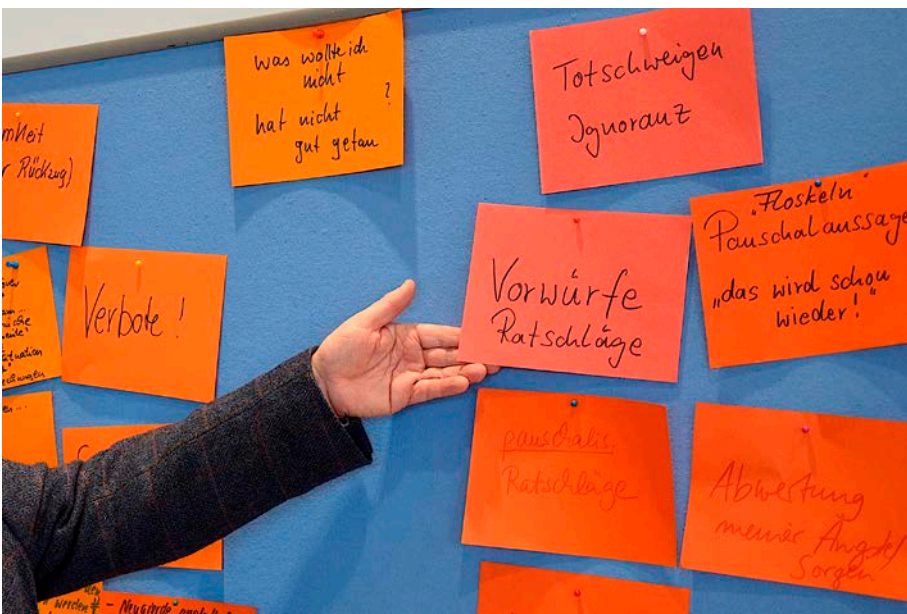 was wollte ich
nicht
hat nicht ?
gut getan
Totschweigen
Ignoranz
Rückzug)
Verbote!
Vorwürfe
Ratschläge
"Floskeln"
Pauschalaussage
„das wird schon
wieder!"
pauschale
Ratschläge
Abwertung
meiner Ängste/
Sorgen
werden